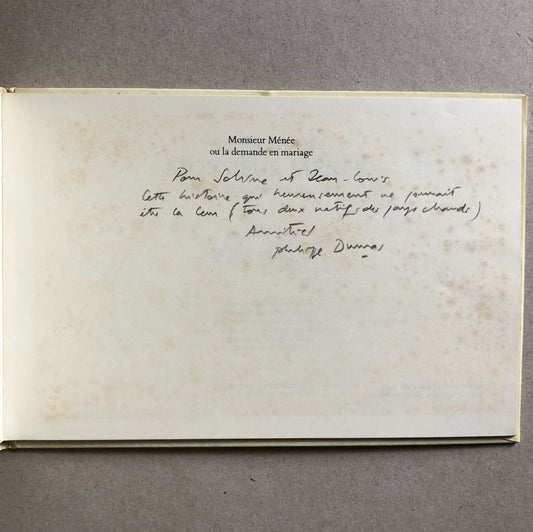 Monsieur Ménée
ou la demande en mariage
Pour Sabine et Jean-Louis
Cette histoire qui heureusement ne pouvait
être la leur (tous deux natifs des pays chauds)
Amitiés
Philippe Dumas